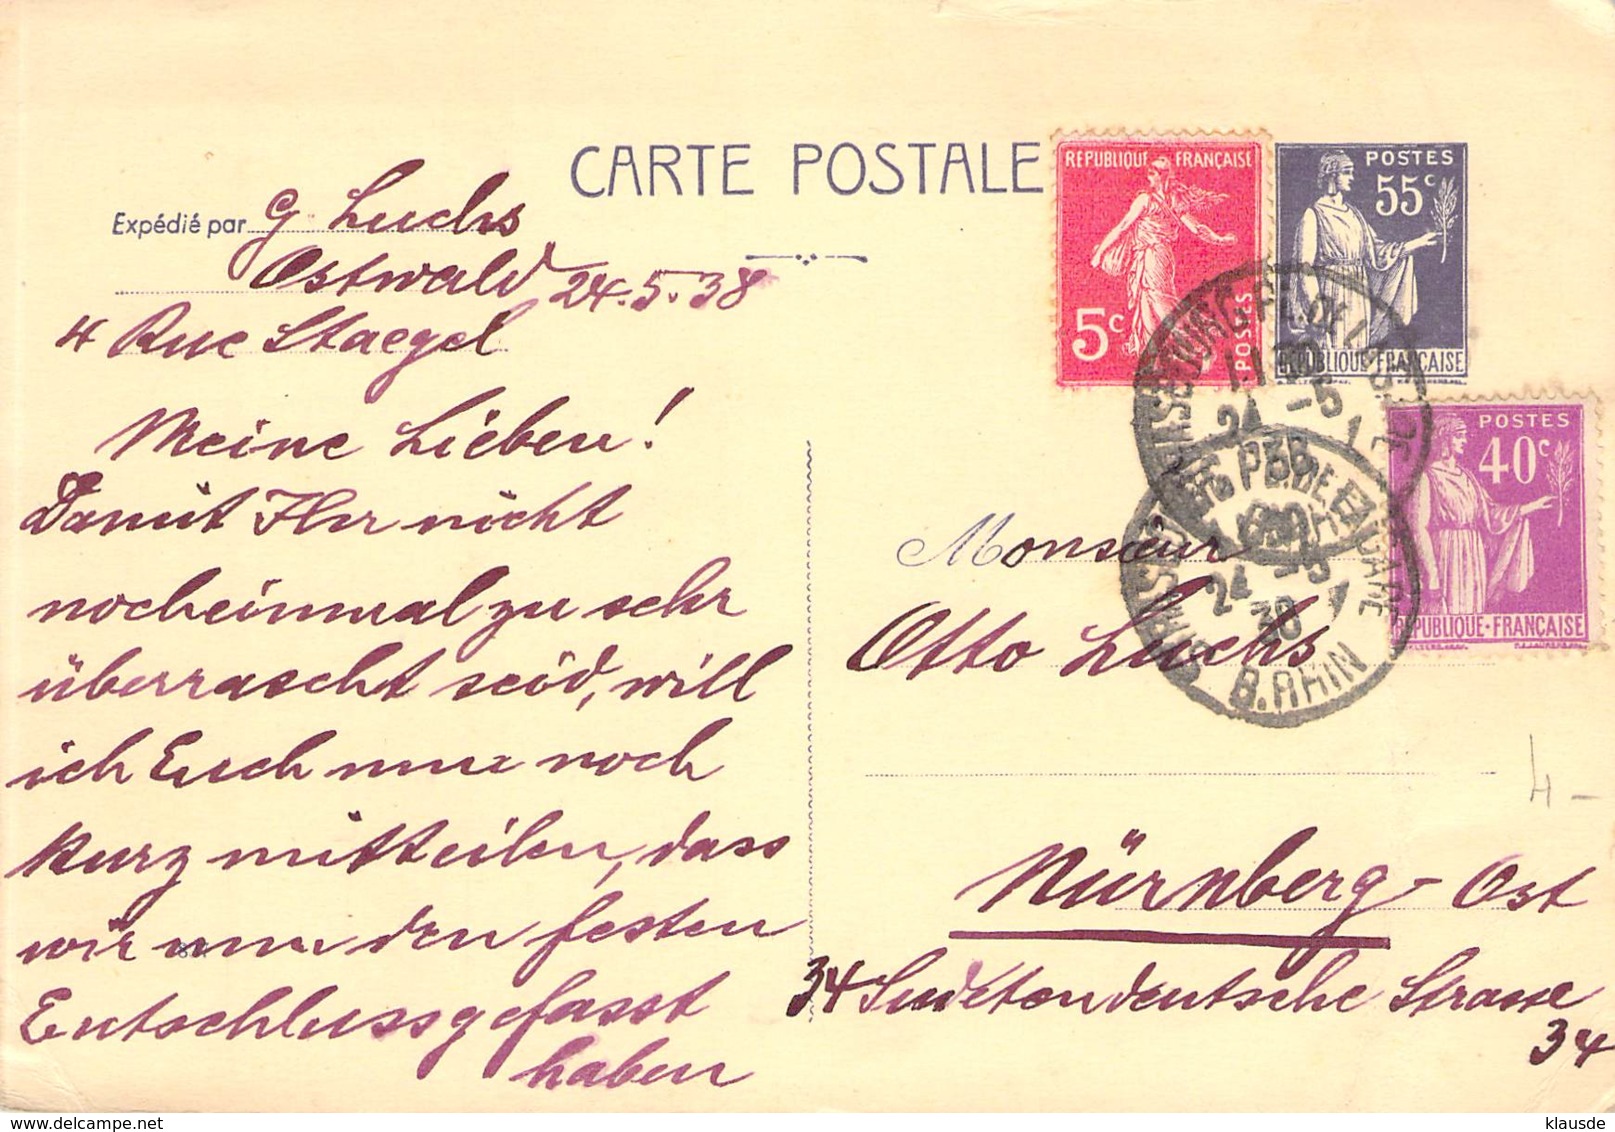 CARTE POSTALE
Expédié par G Luchs
Ostwald 24.5.38
4 Rue Staegel
Meine Lieben!
Damit Ihr nicht
nocheinmal zu sehr
überrascht seid, will
ich Euch nur noch
kurz mitteilen, dass
wir nun den festen
Entschluss gefasst
haben
REPUBLIQUE FRANÇAISE
5c
POSTES
POSTES
55c
REPUBLIQUE FRANÇAISE
POSTES
40c
REPUBLIQUE·FRANÇAISE
24 -5
38
24 -5
38
B.RHIN
Monsieur
Otto Luchs
4 -
Nürnberg - Ost
34 Sudetendeutsche Strasse
34
delcampe.net
klausde